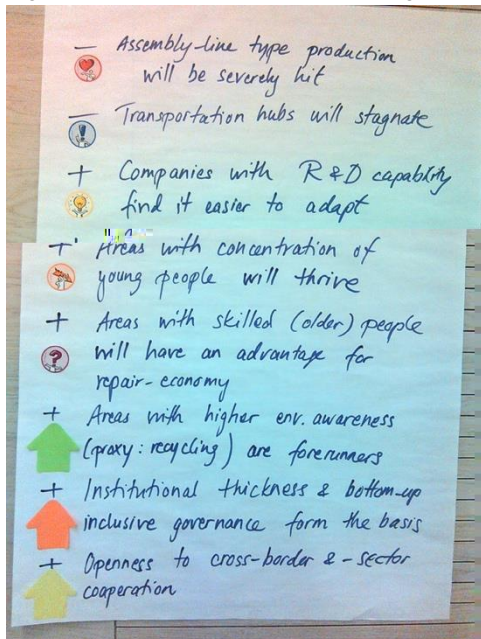 — Assembly-line type production
will be severely hit
— Transportation hubs will stagnate
+ Companies with R&D capability
find it easier to adapt
+ Areas with concentration of
young people will thrive
+ Areas with skilled (older) people
will have an advantage for
repair-economy
+ Areas with higher env. awareness
(proxy: recycling) are forerunners
+ Institutional thickness & bottom-up
inclusive governance form the basis
+ Openness to cross-border & -sector
cooperation